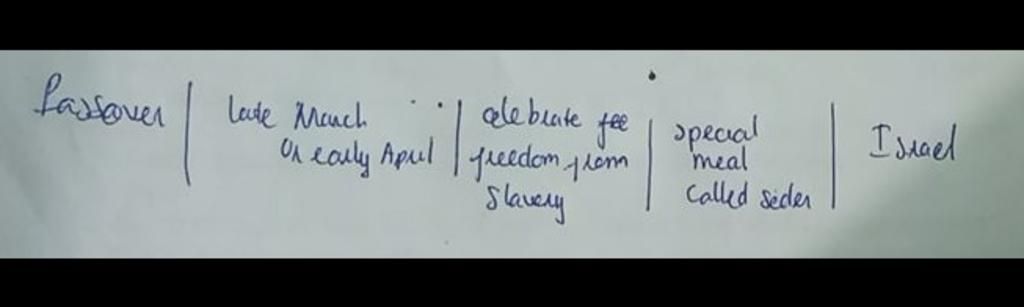 Passover | late March | celebrate fee | special | Israel
or early April | freedom from | meal
slavery | called seder